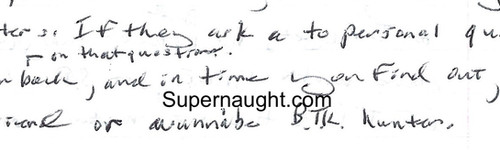 ters. If they ask a to personal qu
on that questions.
n back, and in time you find out,
Supernaught.com
or wannabe B.T.K. hunters.